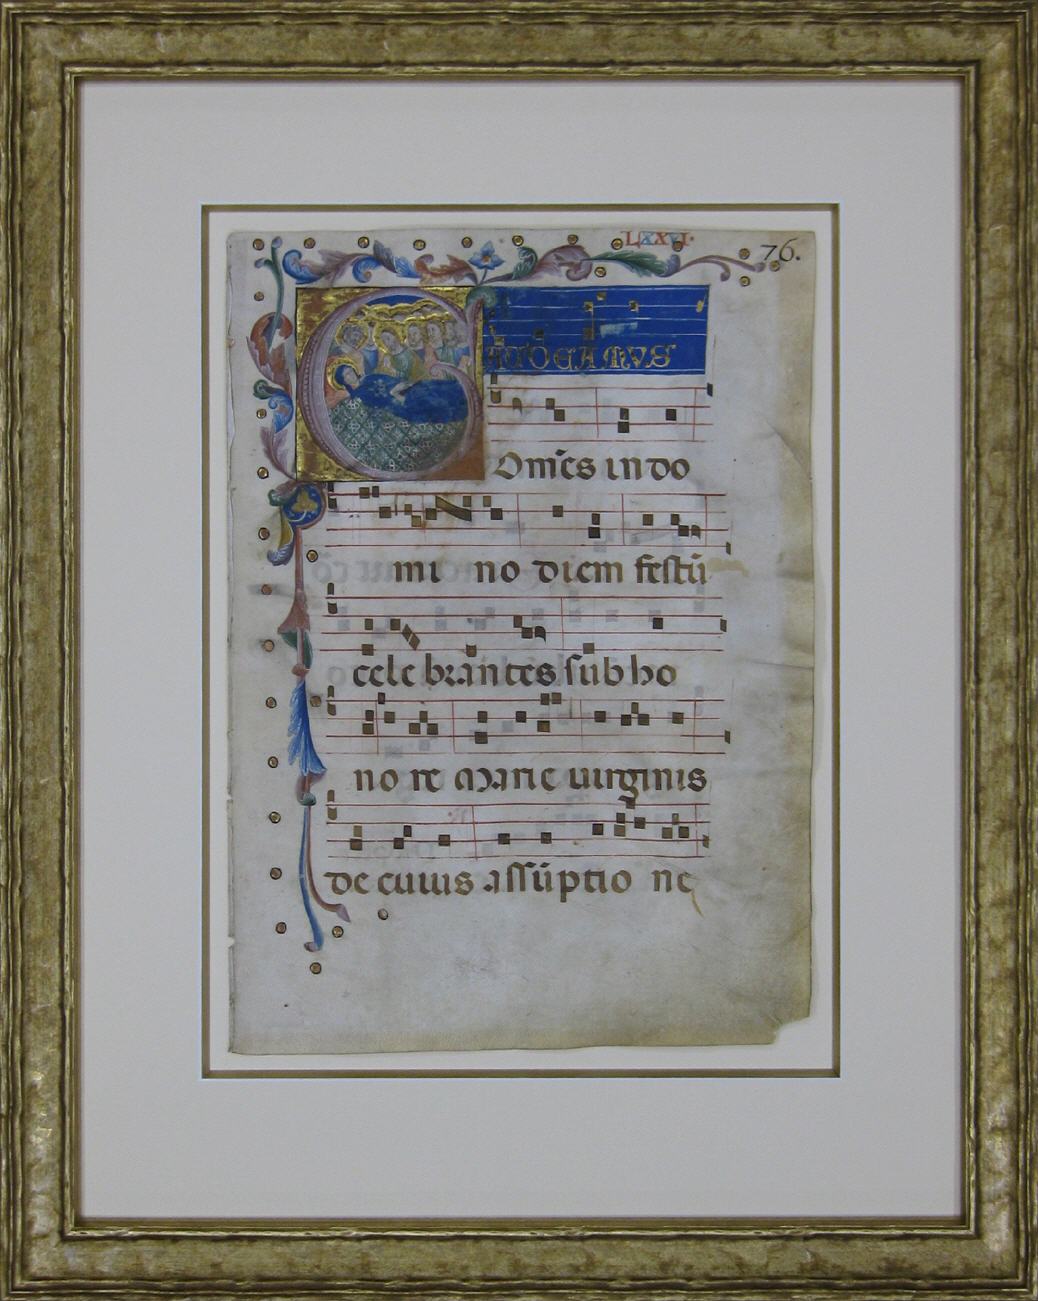 LXXVI.
76.
GAUDEAMVS
Om̄es in do
mi no diem festū
cele brantes sub ho
no re marie uirginis
de cuius assūptio ne